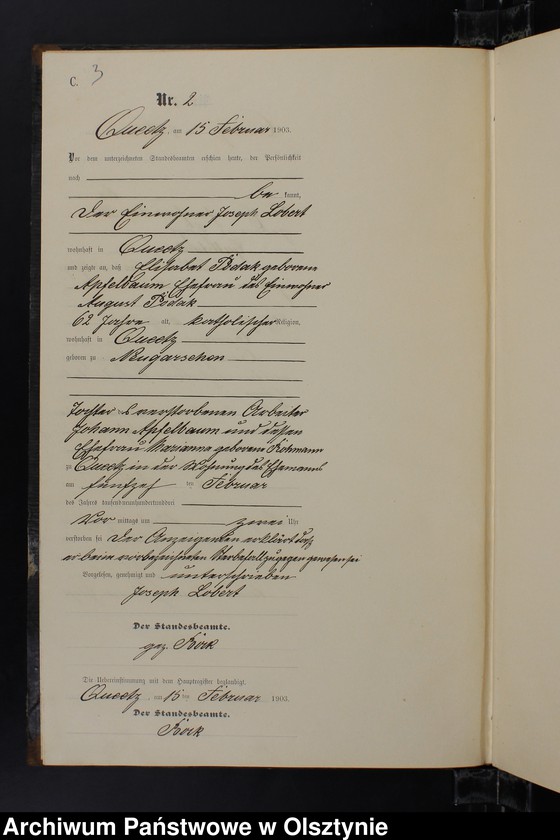 C. 3
Nr. 2
Queetz, am 15 Februar 1903.
Vor dem unterzeichneten Standesbeamten erschien heute, der Persönlichkeit
nach
be kannt,
der Einwohner Joseph Lobert
wohnhaft in Queetz
und zeigte an, daß Elisabet Podak geborene
Apfelbaum Ehefrau des Einwohner
August Podak
62 Jahre alt, katholischer Religion,
wohnhaft in Queetz
geboren zu Neugarschen
Tochter des verstorbenen Arbeiter
Johann Apfelbaum und dessen
Ehefrau Marianna geborene
zu Queetz in der Wohnung des Ehemanns
am fünfzeh ten Februar
des Jahres tausendneunhundertunddrei
Vor mittags um zwei Uhr
verstorben sei der Anzeigende erklärt daß
er beim vorbezeichneten Sterbefall zugegen gewesen sei
Vorgelesen, genehmigt und unterschrieben
Joseph Lobert
Der Standesbeamte.
gez.
Die Uebereinstimmung mit dem Hauptregister beglaubigt.
Queetz, am 15 ten Februar 1903.
Der Standesbeamte.
Archiwum Państwowe w Olsztynie